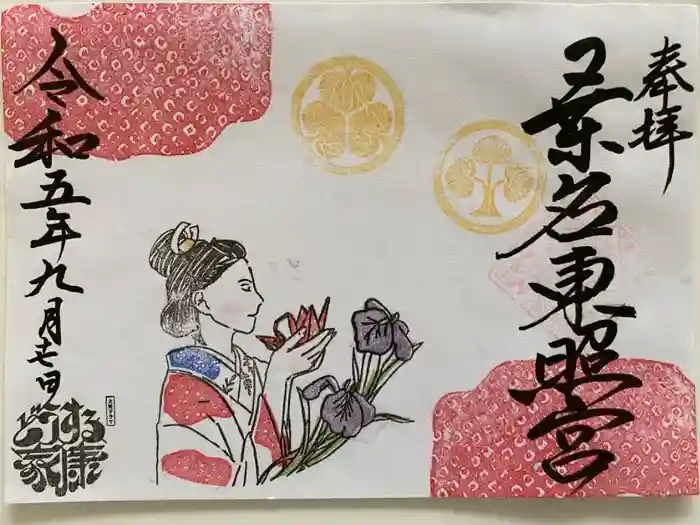 奉拝
桑名東照宮
令和五年九月廿七日
どうする
家康